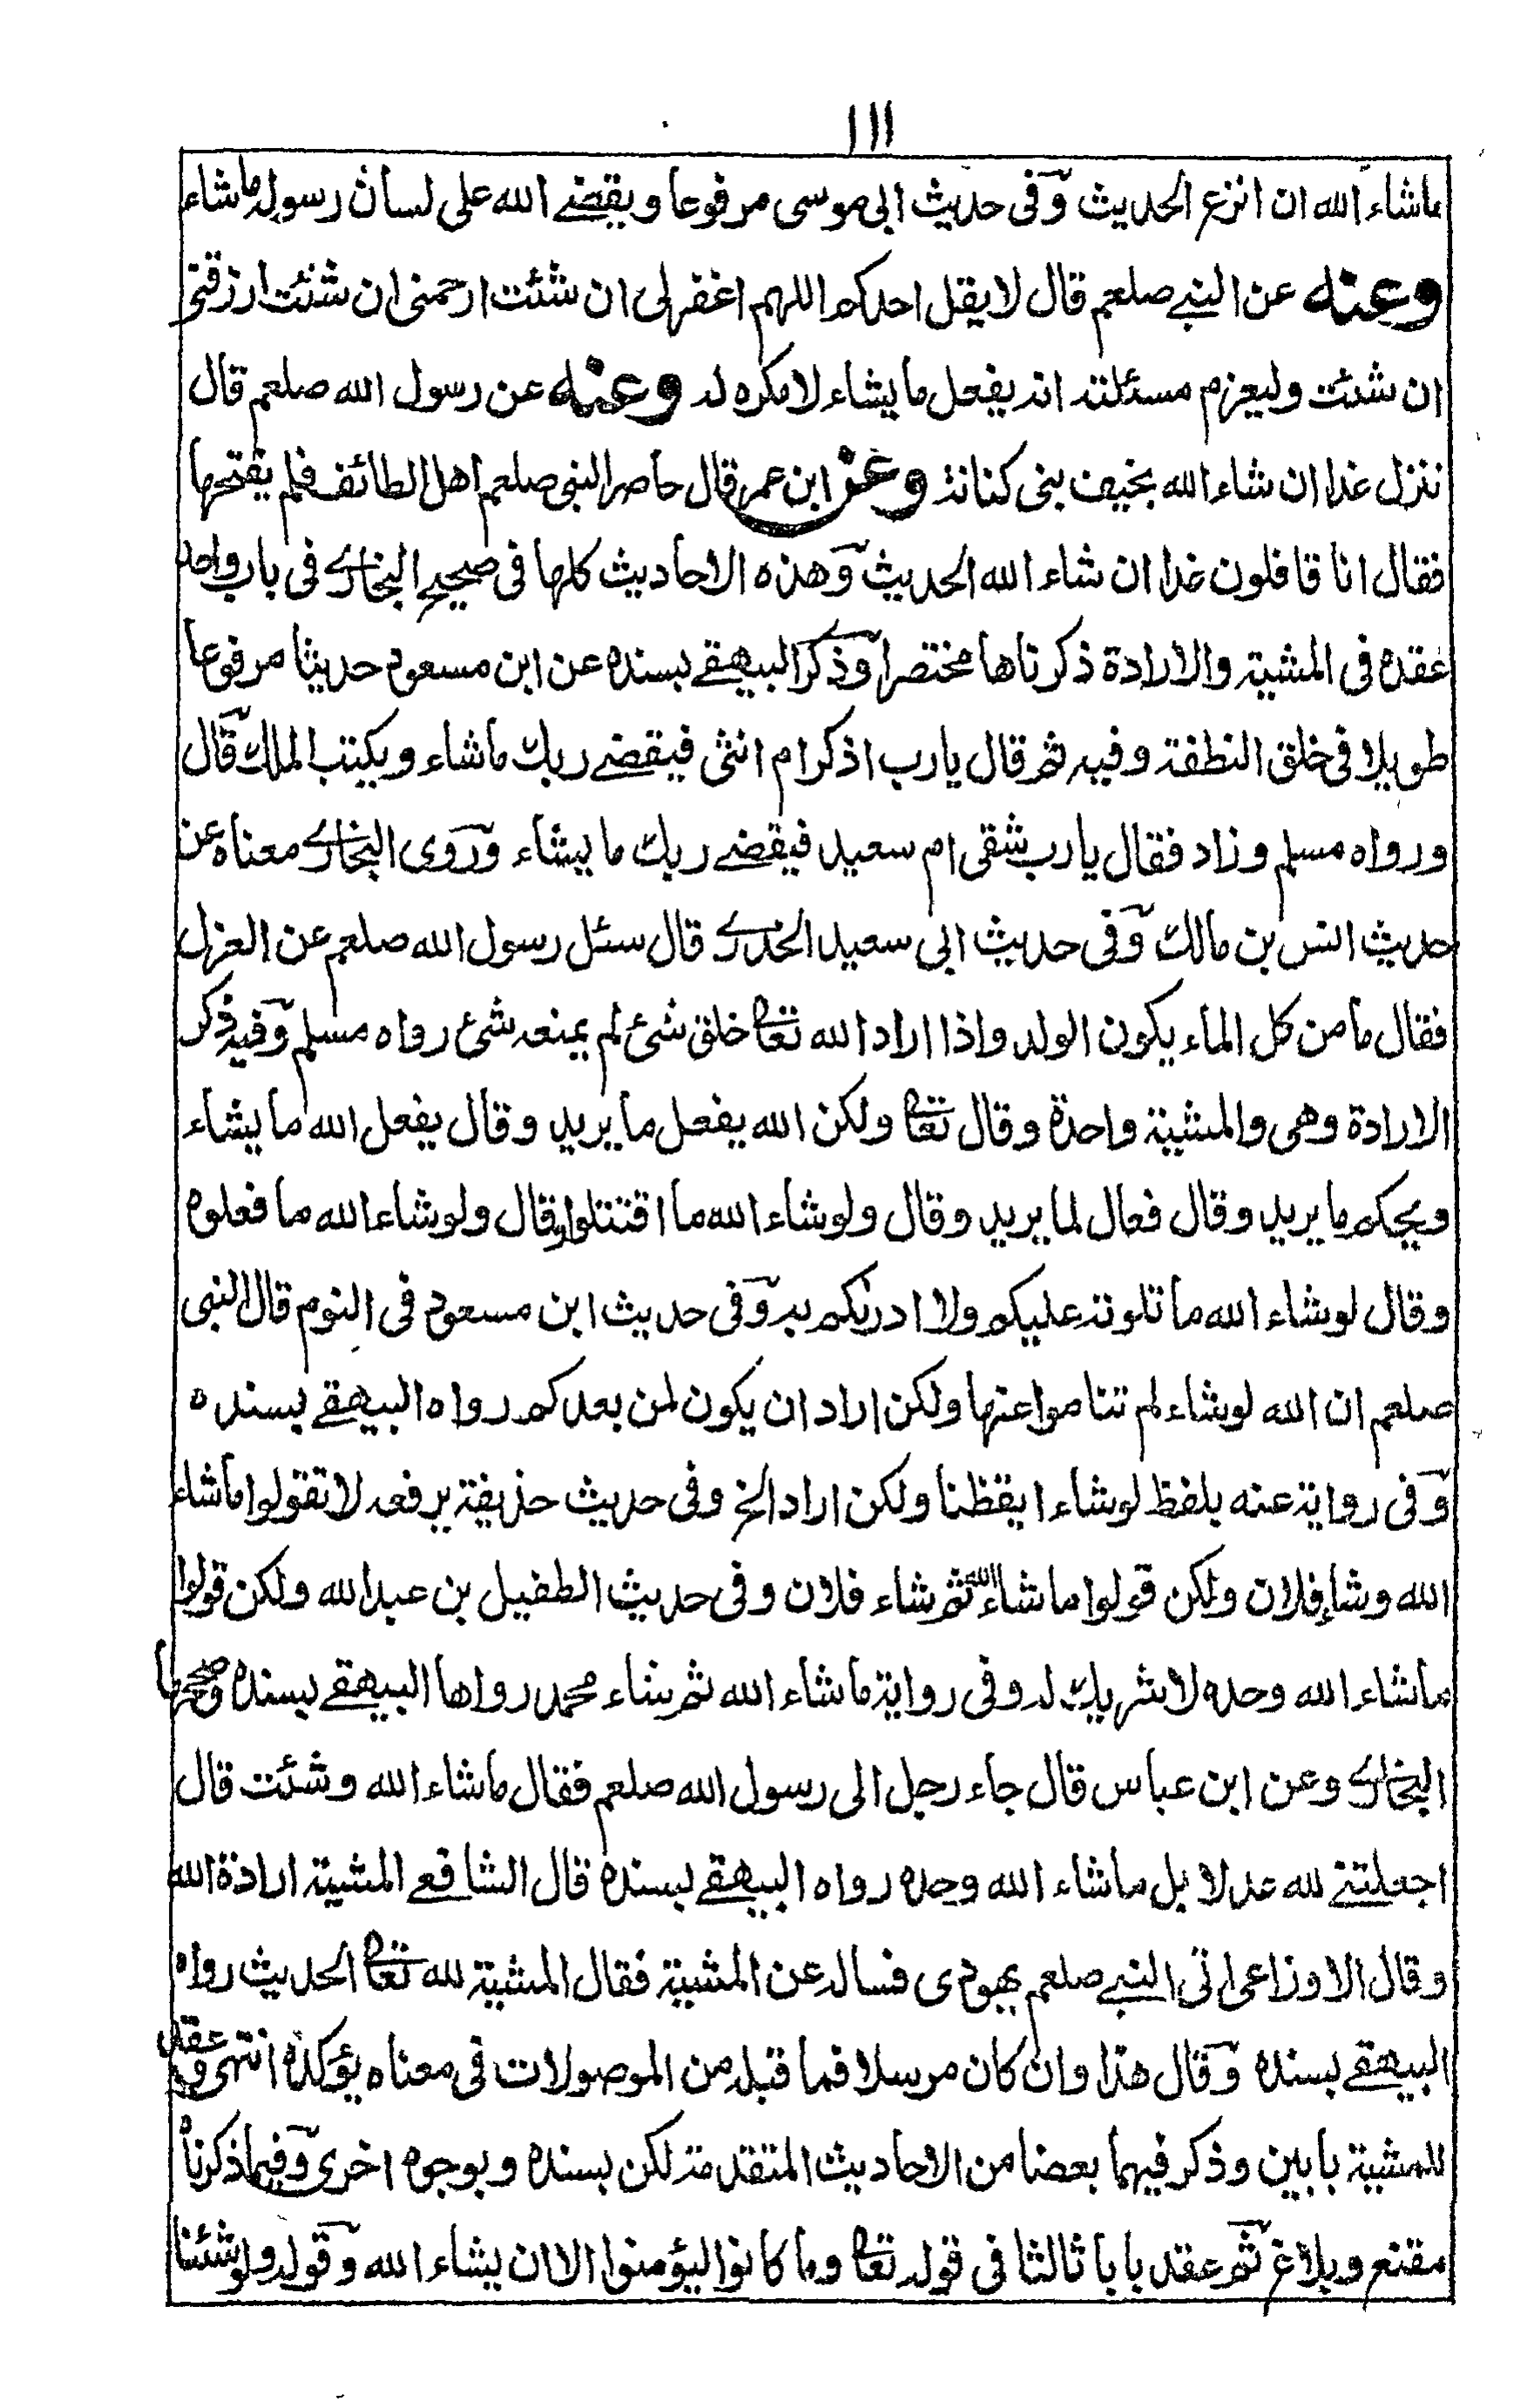 ١١١
ماشاء الله ان انزع الحديث وفى حديث ابى موسى مرفوعا ويقضے الله على لسان رسوله ماشاء
وعنه عن النبے صلعم قال لا يقل احدكم اللهم اغفرلى ان شئت ارحمنى ان شئت ارزقنى
ان شئت وليعزم مسئلته انه يفعل ما يشاء لا مكره له وعنه عن رسول الله صلعم قال
ننزل غدا ان شاء الله بخيف بنى كنانة وعن ابن عمر قال حاصر النبى صلعم اهل الطائف فلم يفتحها
فقال انا قافلون غدا ان شاء الله الحديث وهذه الاحاديث كلها فى صحيح البخارے فى باب واحد
عقده فى المشية والارادة ذكرناها مختصرا وذكر البيهقے بسنده عن ابن مسعود حديثا مرفوعا
طويلا فى خلق النطفة وفيه ثم قال يارب اذكر ام انثى فيقضے ربك ماشاء ويكتب الملك قال
ورواه مسلم وزاد فقال يارب شقى ام سعيد فيقضے ربك ما يشاء وروى البخارے معناه عن
حديث انس بن مالك وفى حديث ابى سعيد الخدرے قال سئل رسول الله صلعم عن العزل
فقال ما من كل الماء يكون الولد واذا اراد الله تعالى خلق شئ لم يمنعه شئ رواه مسلم وفيه ذكر
الارادة وهى والمشية واحدة وقال تعالى ولكن الله يفعل ما يريد وقال يفعل الله ما يشاء
ويحكم ما يريد وقال فعال لما يريد وقال ولوشاء الله ما اقتتلوا وقال ولوشاء الله ما فعلوه
وقال لوشاء الله ما تلوته عليكم ولا ادريكم به وفى حديث ابن مسعود فى النوم قال النبى
صلعم ان الله لوشاء لم تناموا عنها ولكن اراد ان يكون لمن بعدكم رواه البيهقے بسنده
وفى رواية عنه بلفظ لوشاء ايقظنا ولكن اراد الخ وفى حديث حذيفة يرفعه لا تقولوا ماشاء
الله وشاء فلان ولكن قولوا ماشاء الله ثم شاء فلان وفى حديث الطفيل بن عبدالله ولكن قولوا
ماشاء الله وحده لا شريك له وفى رواية ماشاء الله ثم شاء محمد رواها البيهقے بسنده وصححها
البخارے وعن ابن عباس قال جاء رجل الى رسول الله صلعم فقال ماشاء الله وشئت قال
اجعلتنے لله عدلا بل ماشاء الله وحده رواه البيهقے بسنده قال الشافعے المشية ارادة الله
وقال الاوزاعى اتى النبے صلعم يهودى فساله عن المشية فقال المشية لله تعالى الحديث رواه
البيهقے بسنده وقال هذا وان كان مرسلا فما قبله من الموصولات فى معناه يؤكده انتهى وعقد
للمشية بابين وذكر فيهما بعضا من الاحاديث المتقدمة لكن بسنده وبوجوه اخرى وفيما ذكرناه
مقنع وبلاغ ثم عقد بابا ثالثا فى قوله تعالى وما كانوا ليؤمنوا الا ان يشاء الله وقوله ولو شئنا